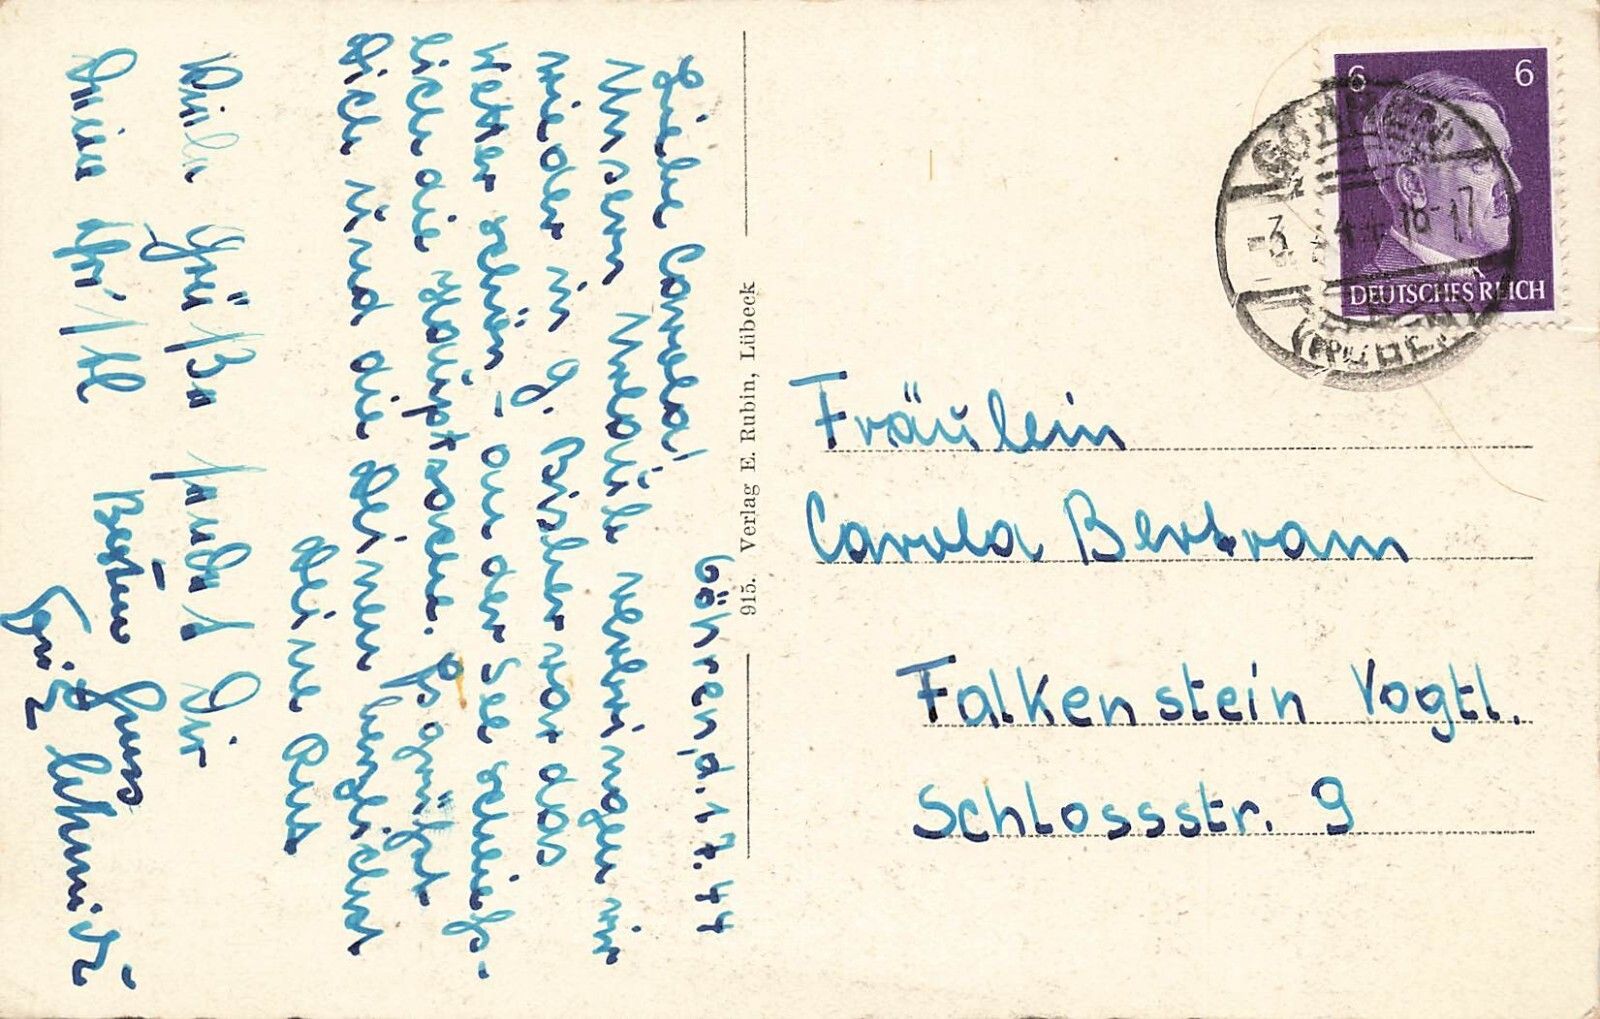 Göhren, d. 1.7.44
Liebe Carola!
Unsern Urlaub verbringen wir
wieder in G. Bisher war das
Wetter schön – an der See schließ-
lich die Hauptsache. Es grüßt
Dich und die Deinen herzlichst
Deine Rut
Viele Grüße sendet Dir
Deine
Besten Gruss
Fritz Schmidt
915. Verlag E. Rubin, Lübeck
6 6
DEUTSCHES REICH
GÖHREN
-3. 44 - 17
(RÜGEN)
Fräulein
Carola Bertram
Falkenstein Vogtl.
Schlossstr. 9